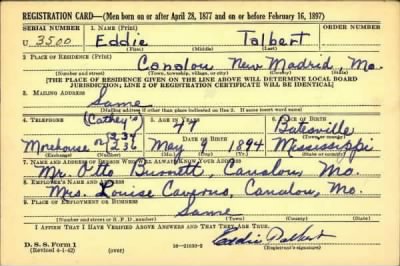 REGISTRATION CARD—(Men born on or after April 28, 1877 and on or before February 16, 1897)
SERIAL NUMBER 1. NAME (Print) ORDER NUMBER
U 3500 Eddie Talbert
(First) (Middle) (Last)
2. PLACE OF RESIDENCE (Print)
Canalou New Madrid, Mo.
(Number and street) (Town, township, village, or city) (County) (State)
[THE PLACE OF RESIDENCE GIVEN ON THE LINE ABOVE WILL DETERMINE LOCAL BOARD
JURISDICTION; LINE 2 OF REGISTRATION CERTIFICATE WILL BE IDENTICAL]
3. MAILING ADDRESS
Same
[Mailing address if other than place indicated on line 2. If same insert word same]
4. TELEPHONE 5. AGE IN YEARS 6. PLACE OF BIRTH
(Cathey's) 47 Batesville
334
DATE OF BIRTH
Morehouse or 236 May 9 1894 Mississippi
(Exchange) (Number) (Mo.) (Day) (Yr.) (State or country)
7. NAME AND ADDRESS OF PERSON WHO WILL ALWAYS KNOW YOUR ADDRESS
Mr. Otto Burnett, Canalou, Mo.
8. EMPLOYER'S NAME AND ADDRESS
Mrs. Louise Caverno, Canalou, Mo.
9. PLACE OF EMPLOYMENT OR BUSINESS
Same
(Number and street or R. F. D. number) (Town) (County) (State)
I AFFIRM THAT I HAVE VERIFIED ABOVE ANSWERS AND THAT THEY ARE TRUE.
D. S. S. Form 1
(Revised 4-1-42) (over) 16—21630-2 Eddie Talbert
(Registrant's signature)